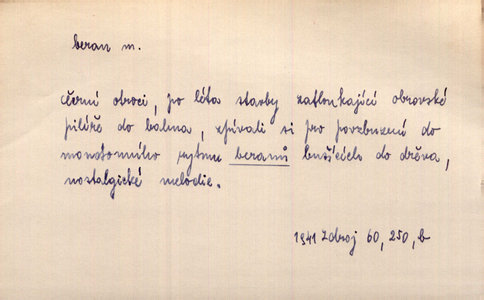 beran m.
černí obroci, po léta stavby zatloukající obrovské
pilíře do bahna, zpívali si pro povzbuzení do
monotonního rytmu beranů bušících do dřeva,
nostalgické melodie.
1941 Zdroj 60, 250, b